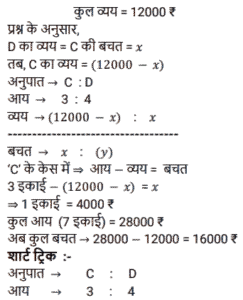 कुल व्यय = 12000 ₹
प्रश्न के अनुसार,
D का व्यय = C की बचत = x
तब, C का व्यय = (12000 − x)
अनुपात → C : D
आय → 3 : 4
व्यय → (12000 − x) : x
--------------------------------
बचत → x : (y)
'C' के केस में ⇒ आय − व्यय = बचत
3 इकाई − (12000 − x) = x
⇒ 1 इकाई = 4000 ₹
कुल आय (7 इकाई) = 28000 ₹
अब कुल बचत → 28000 − 12000 = 16000 ₹
शार्ट ट्रिक :-
अनुपात → C : D
आय → 3 : 4